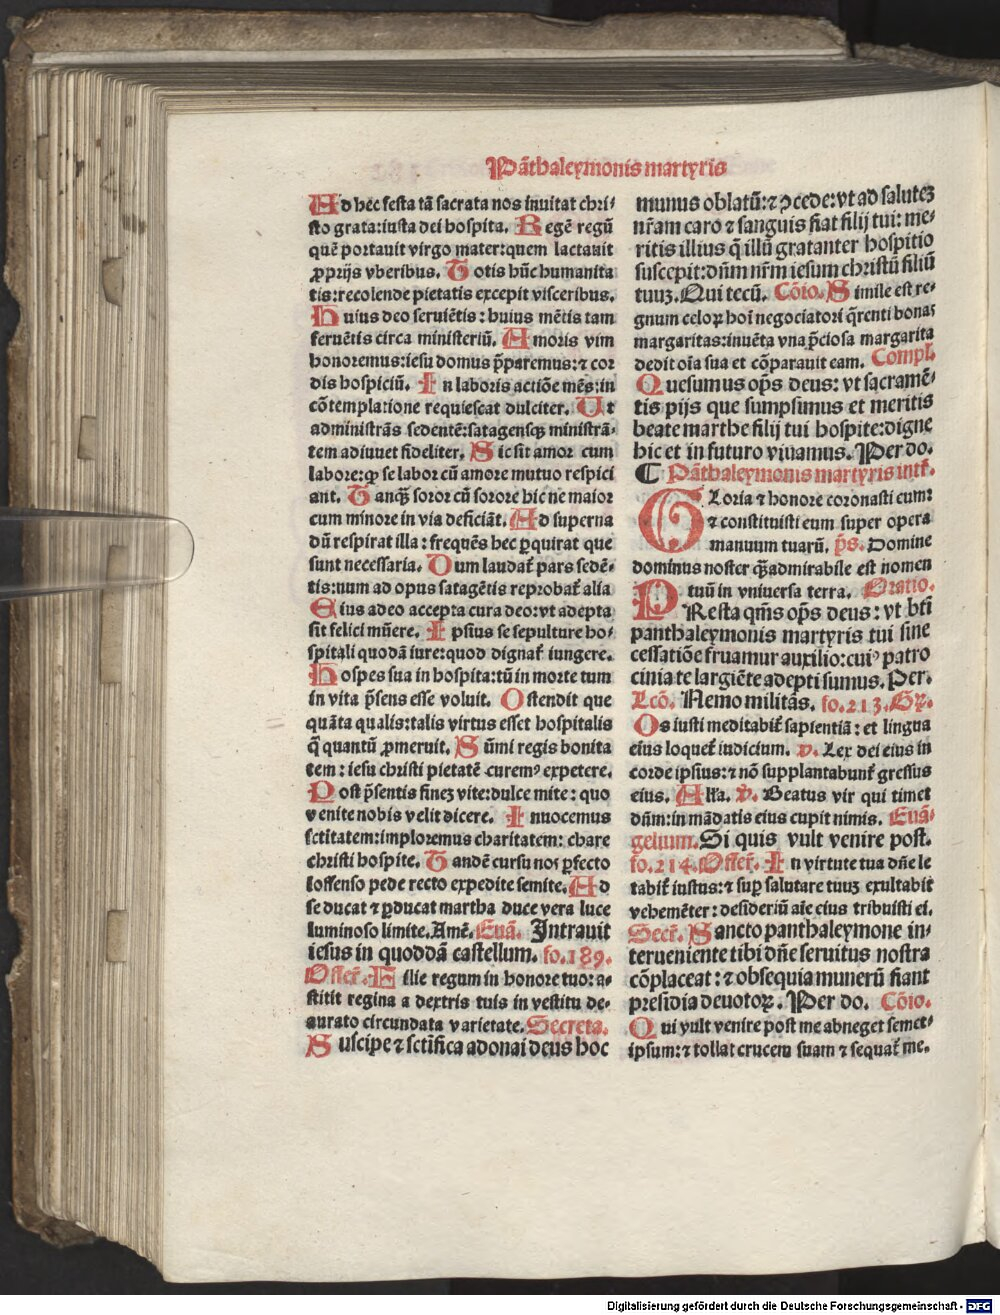 Pāthaleymonis martyris
Ad hec festa tā sacrata nos inuitat chri-
sto grata: iusta dei hospita. Regē regū
quē portauit virgo mater: quem lactauit
ꝓprijs vberibus. Totis hūc humanita
tis: recolende pietatis excepit visceribus.
Huius deo seruiētis: huius mētis tam
feruētis circa ministeriū. Amoris vim
honoremus: iesu domus p̄paremus: ⁊ cor
dis hospiciū. In laboris actiōe mēs: in
cōtemplatione requiescat dulciter. Ut
administrās sedentē: satagensqꝫ ministrā-
tem adiuuet fideliter. Sic sit amor cum
labore: ꝙ se labor cū amore mutuo respici
ant. Tanqꝫ soror cū sorore hic ne maior
cum minore in via deficiāt. Ad superna
dū respirat illa: frequēs hec ꝑquirat que
sunt necessaria. Dum laudat̄ pars sedē-
tis: num ad opus satagētis reprobat̄ alia
Eius adeo accepta cura deo: vt adepta
sit felici mūere. Ipsius se sepulture ho-
spitali quodā iure: quod dignat̄ iungere.
Hospes sua in hospita: tū in morte tum
in vita p̄sens esse voluit. Ostendit que
quāta qualis: talis virtus esset hospitalis
q̄ quantū ꝓmeruit. Sūmi regis bonita
tem: iesu christi pietatē curemꝰ expetere.
Post p̄sentis finez vite: dulce mite: quo
venite nobis velit dicere. Innocemus
sctitatem: imploremus charitatem: chare
christi hospite. Tandē cursu nos ꝑfecto
Ioffenso pede recto expedite semite. Ad
se ducat ⁊ ꝑducat martha duce vera luce
luminoso limite. Amē. Euā. Intrauit
iesus in quoddā castellum. fo.189.
Offer̄. Filie regum in honore tuo: a-
stitit regina a dextris tuis in vestitu de-
aurato circundata varietate. Secreta.
Suscipe ⁊ sctifica adonai deus hoc
munus oblatū: ⁊ ꝯcede: vt ad salutez
nr̄am caro ⁊ sanguis fiat filij tui: me-
ritis illius q̄ illū gratanter hospitio
suscepit: dn̄m nr̄m iesum christū filiū
tuuz. Qui tecū. Cōio. Simile est re-
gnum celoꝝ hoī negociatori q̄renti bonas
margaritas: inuēta vna p̄ciosa margarita
dedit oīa sua et cōparauit eam. Compl.
Quesumus op̄s deus: vt sacramē-
tis pijs que sumpsimus et meritis
beate marthe filij tui hospite: digne
hic et in futuro viuamus. Per do.
¶ Pāthaleymonis martyris intr̄.
Gloria ⁊ honore coronasti eum:
⁊ constituisti eum super opera
manuum tuarū. p̄s. Domine
dominus noster qꝫ admirabile est nomen
tuū in vniuersa terra. Oratio.
PResta qm̄s op̄s deus: vt btī
panthaleymonis martyris tui sine
cessatiōe fruamur auxilio: cuiꝰ patro
cinia te largiēte adepti sumus. Per.
Lcō. Nemo militās. fo.213. Gr̄.
Os iusti meditabit̄ sapientiā: et lingua
eius loquet̄ iudicium. v. Lex dei eius in
corde ipsius: ⁊ nō supplantabunt̄ gressus
eius. Alīa. v. Beatus vir qui timet
dn̄m: in mādatis eius cupit nimis. Euā-
gelium. Si quis vult venire post.
fo.214. Offer̄. In virtute tua dn̄e le
tabit̄ iustus: ⁊ suꝑ salutare tuuz exultabit
vehemēter: desideriū aīe eius tribuisti ei.
Secr̄. Sancto panthaleymone in-
terueniente tibi dn̄e seruitus nostra
cōplaceat: ⁊ obsequia munerū fiant
presidia deuotoꝝ. Per do. Cōio.
Qui vult venire post me abneget semet-
ipsum: ⁊ tollat crucem suam ⁊ sequat̄ me.
Digitalisierung gefördert durch die Deutsche Forschungsgemeinschaft - DFG